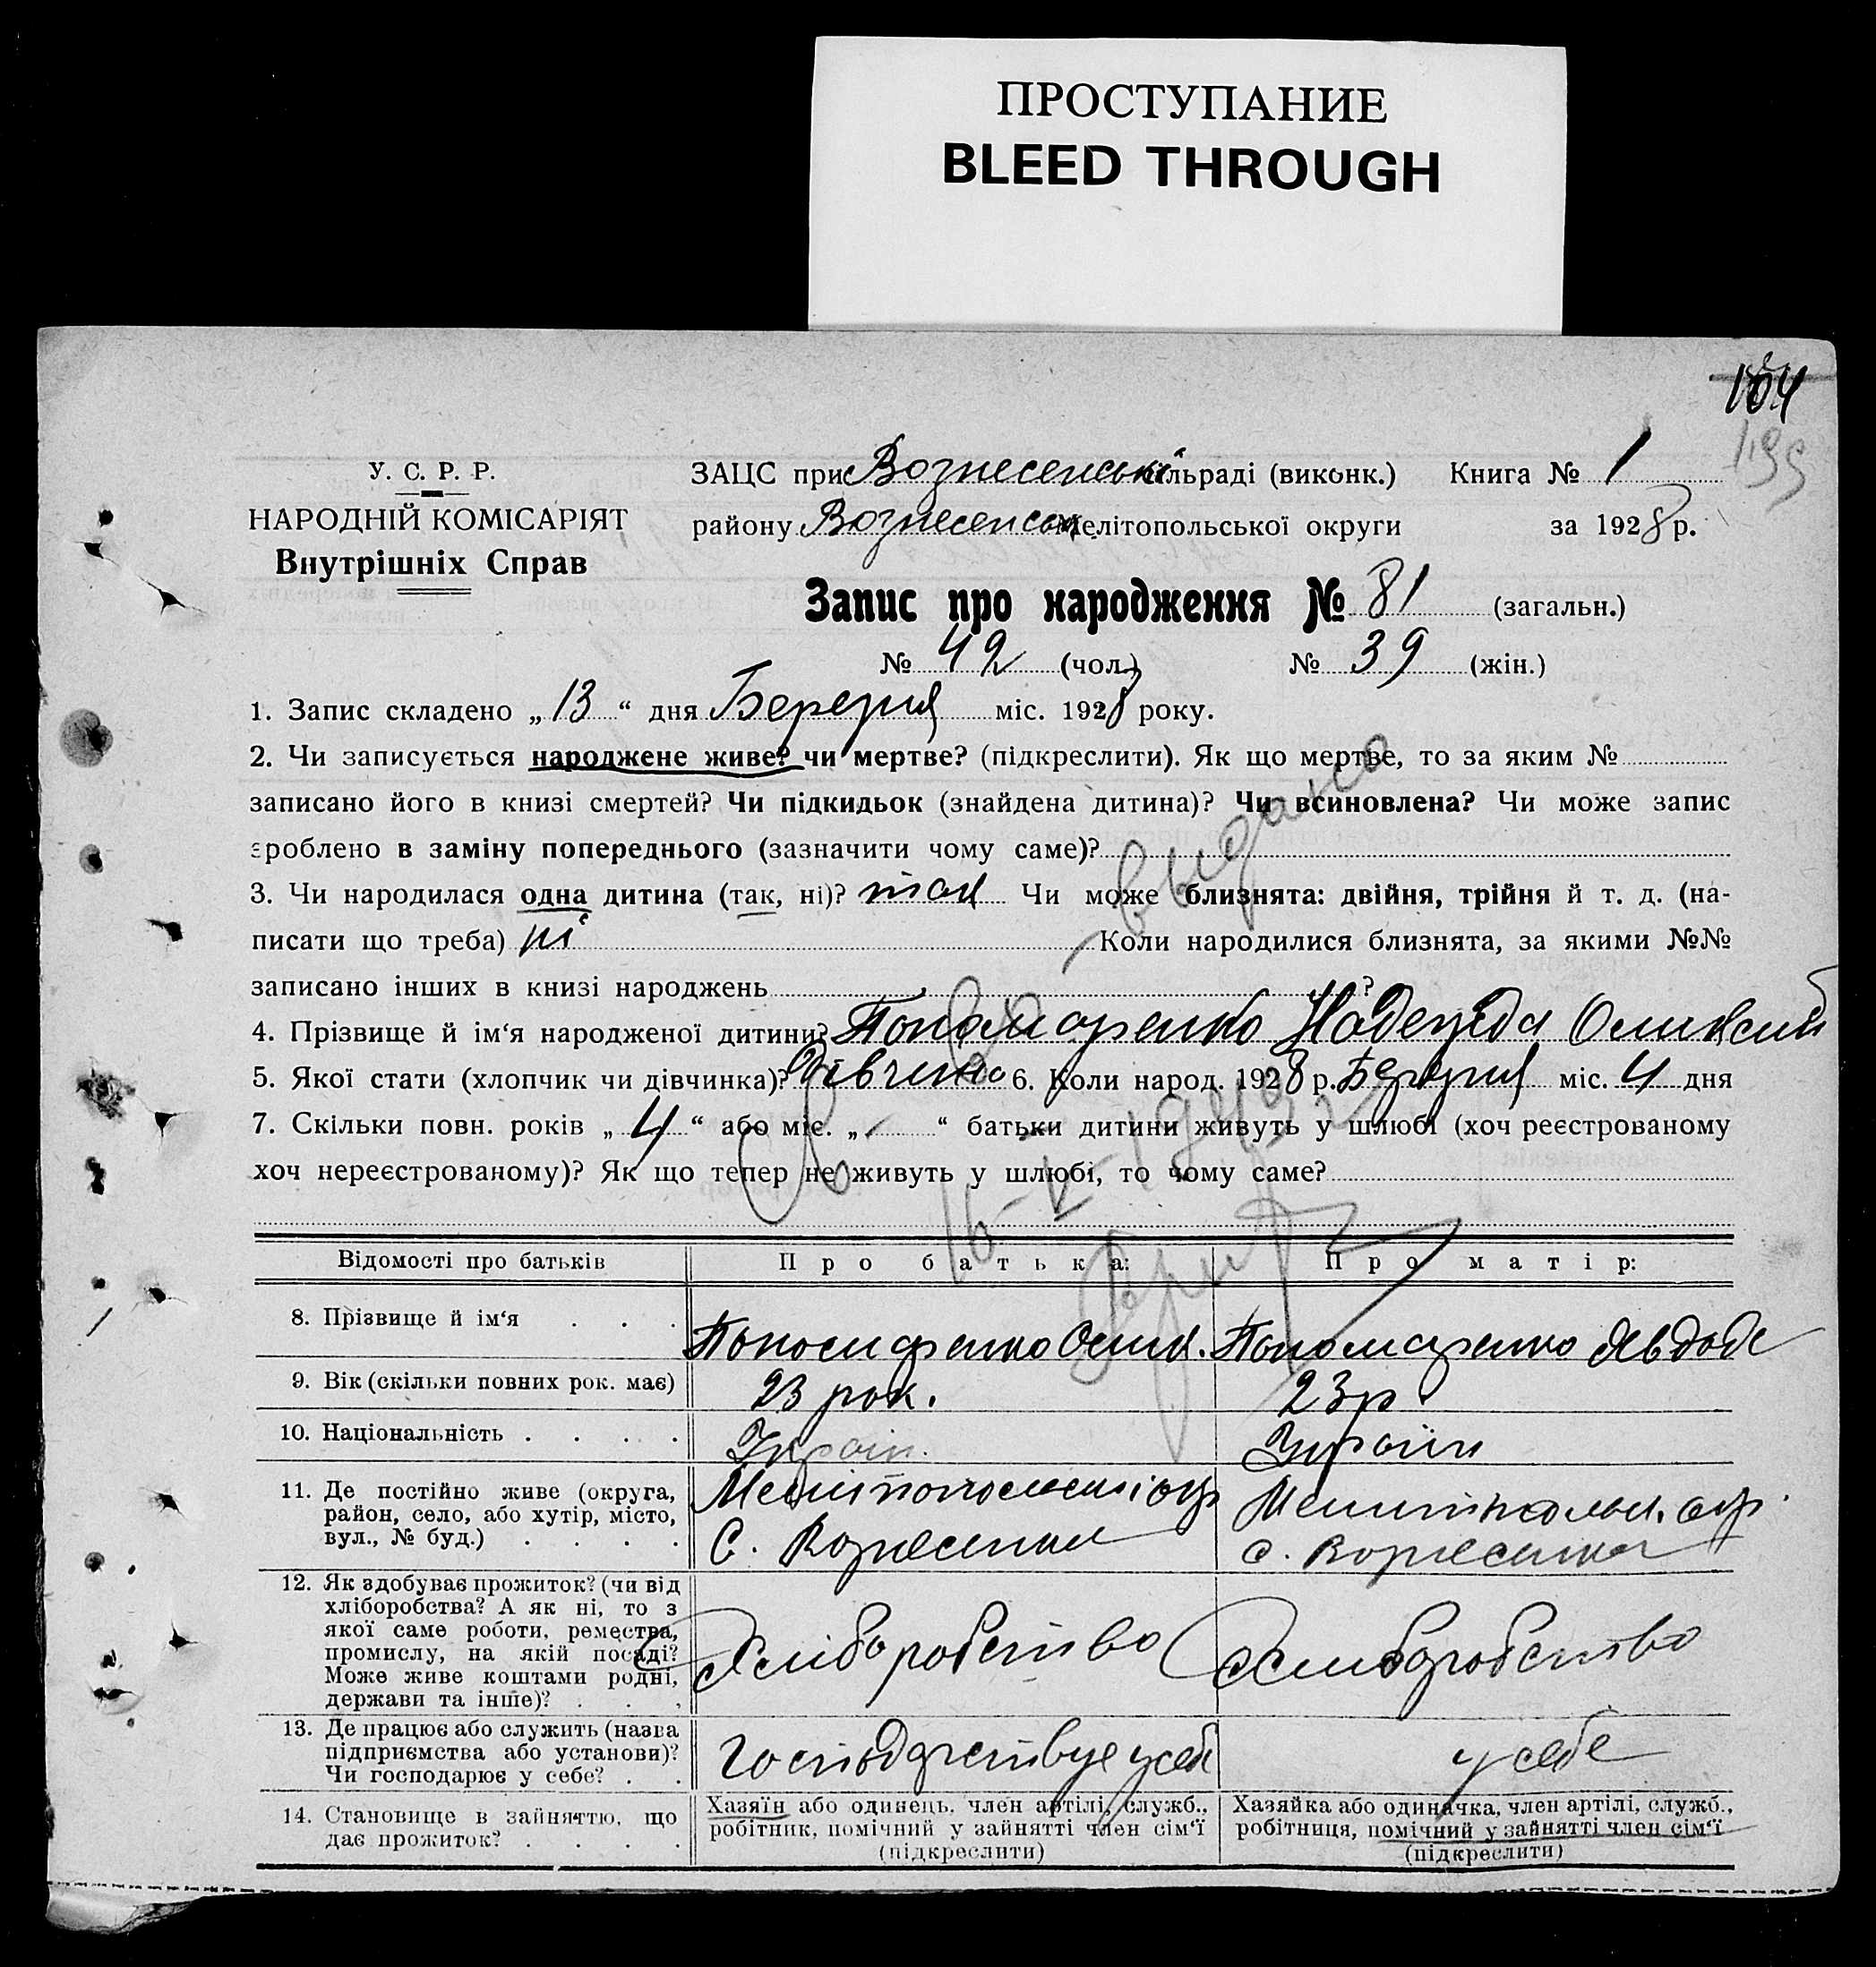 ПРОСТУПАНИЕ
BLEED THROUGH
104
199
У. С. Р. Р.
НАРОДНІЙ КОМІСАРІЯТ
Внутрішніх Справ
ЗАЦС при Вознесенській сільраді (виконк.) Книга № 1
району Вознесенськ. Мелітопольської округи за 1928 р.
Запис про народження № 81 (загальн.)
№ 42 (чол.) № 39 (жін.)
1. Запис складено „ 13 “ дня Березня міс. 1928 року.
2. Чи записується народжене живе? чи мертве? (підкреслити). Як що мертве, то за яким №
записано його в книзі смертей? Чи підкидьок (знайдена дитина)? Чи всиновлена? Чи може запис
зроблено в заміну попереднього (зазначити чому саме)?
3. Чи народилася одна дитина (так, ні)? так Чи може близнята: двійня, трійня й т. д. (на-
писати що треба) ні Коли народилися близнята, за якими №№
записано інших в книзі народжень ?
4. Прізвище й ім‘я народженої дитини? Пономаренко Надежда
5. Якої стати (хлопчик чи дівчинка)? Дівчина 6. Коли народ. 1928 р. Березня міс. 4 дня
7. Скільки повн. років „ 4 “ або міс. „ - “ батьки дитини живуть у шлюбі (хоч реєстрованому
хоч нереєстрованому)? Як що тепер не живуть у шлюбі, то чому саме?
выдано
Відомості про батьків Про батька: Про матір:
8. Прізвище й ім‘я Пономаренко Пономаренко Явдоде
9. Вік (скільки повних рок. має) 23 рок. 23 р
10. Національність Україн. Україн
11. Де постійно живе (округа,
район, село, або хутір, місто,
вул., № буд.)
С. Вознесенка с. Вознесенка
12. Як здобуває прожиток? (чи від
хліборобства? А як ні, то з
якої саме роботи, ремества,
промислу, на якій посаді?
Може живе коштами родні,
держави та інше)?
Хліборобство Хлиборобство
13. Де працює або служить (назва
підприємства або установи)?
Чи господарює у себе?
у себе у себе
14. Становище в зайняттю, що
дає прожиток?
Хазяїн або одинець, член артілі, служб.,
робітник, помічний у зайнятті член сім‘ї
(підкреслити)
Хазяйка або одиначка, член артілі, служб.,
робітниця, помічний у зайнятті член сім‘ї
(підкреслити)